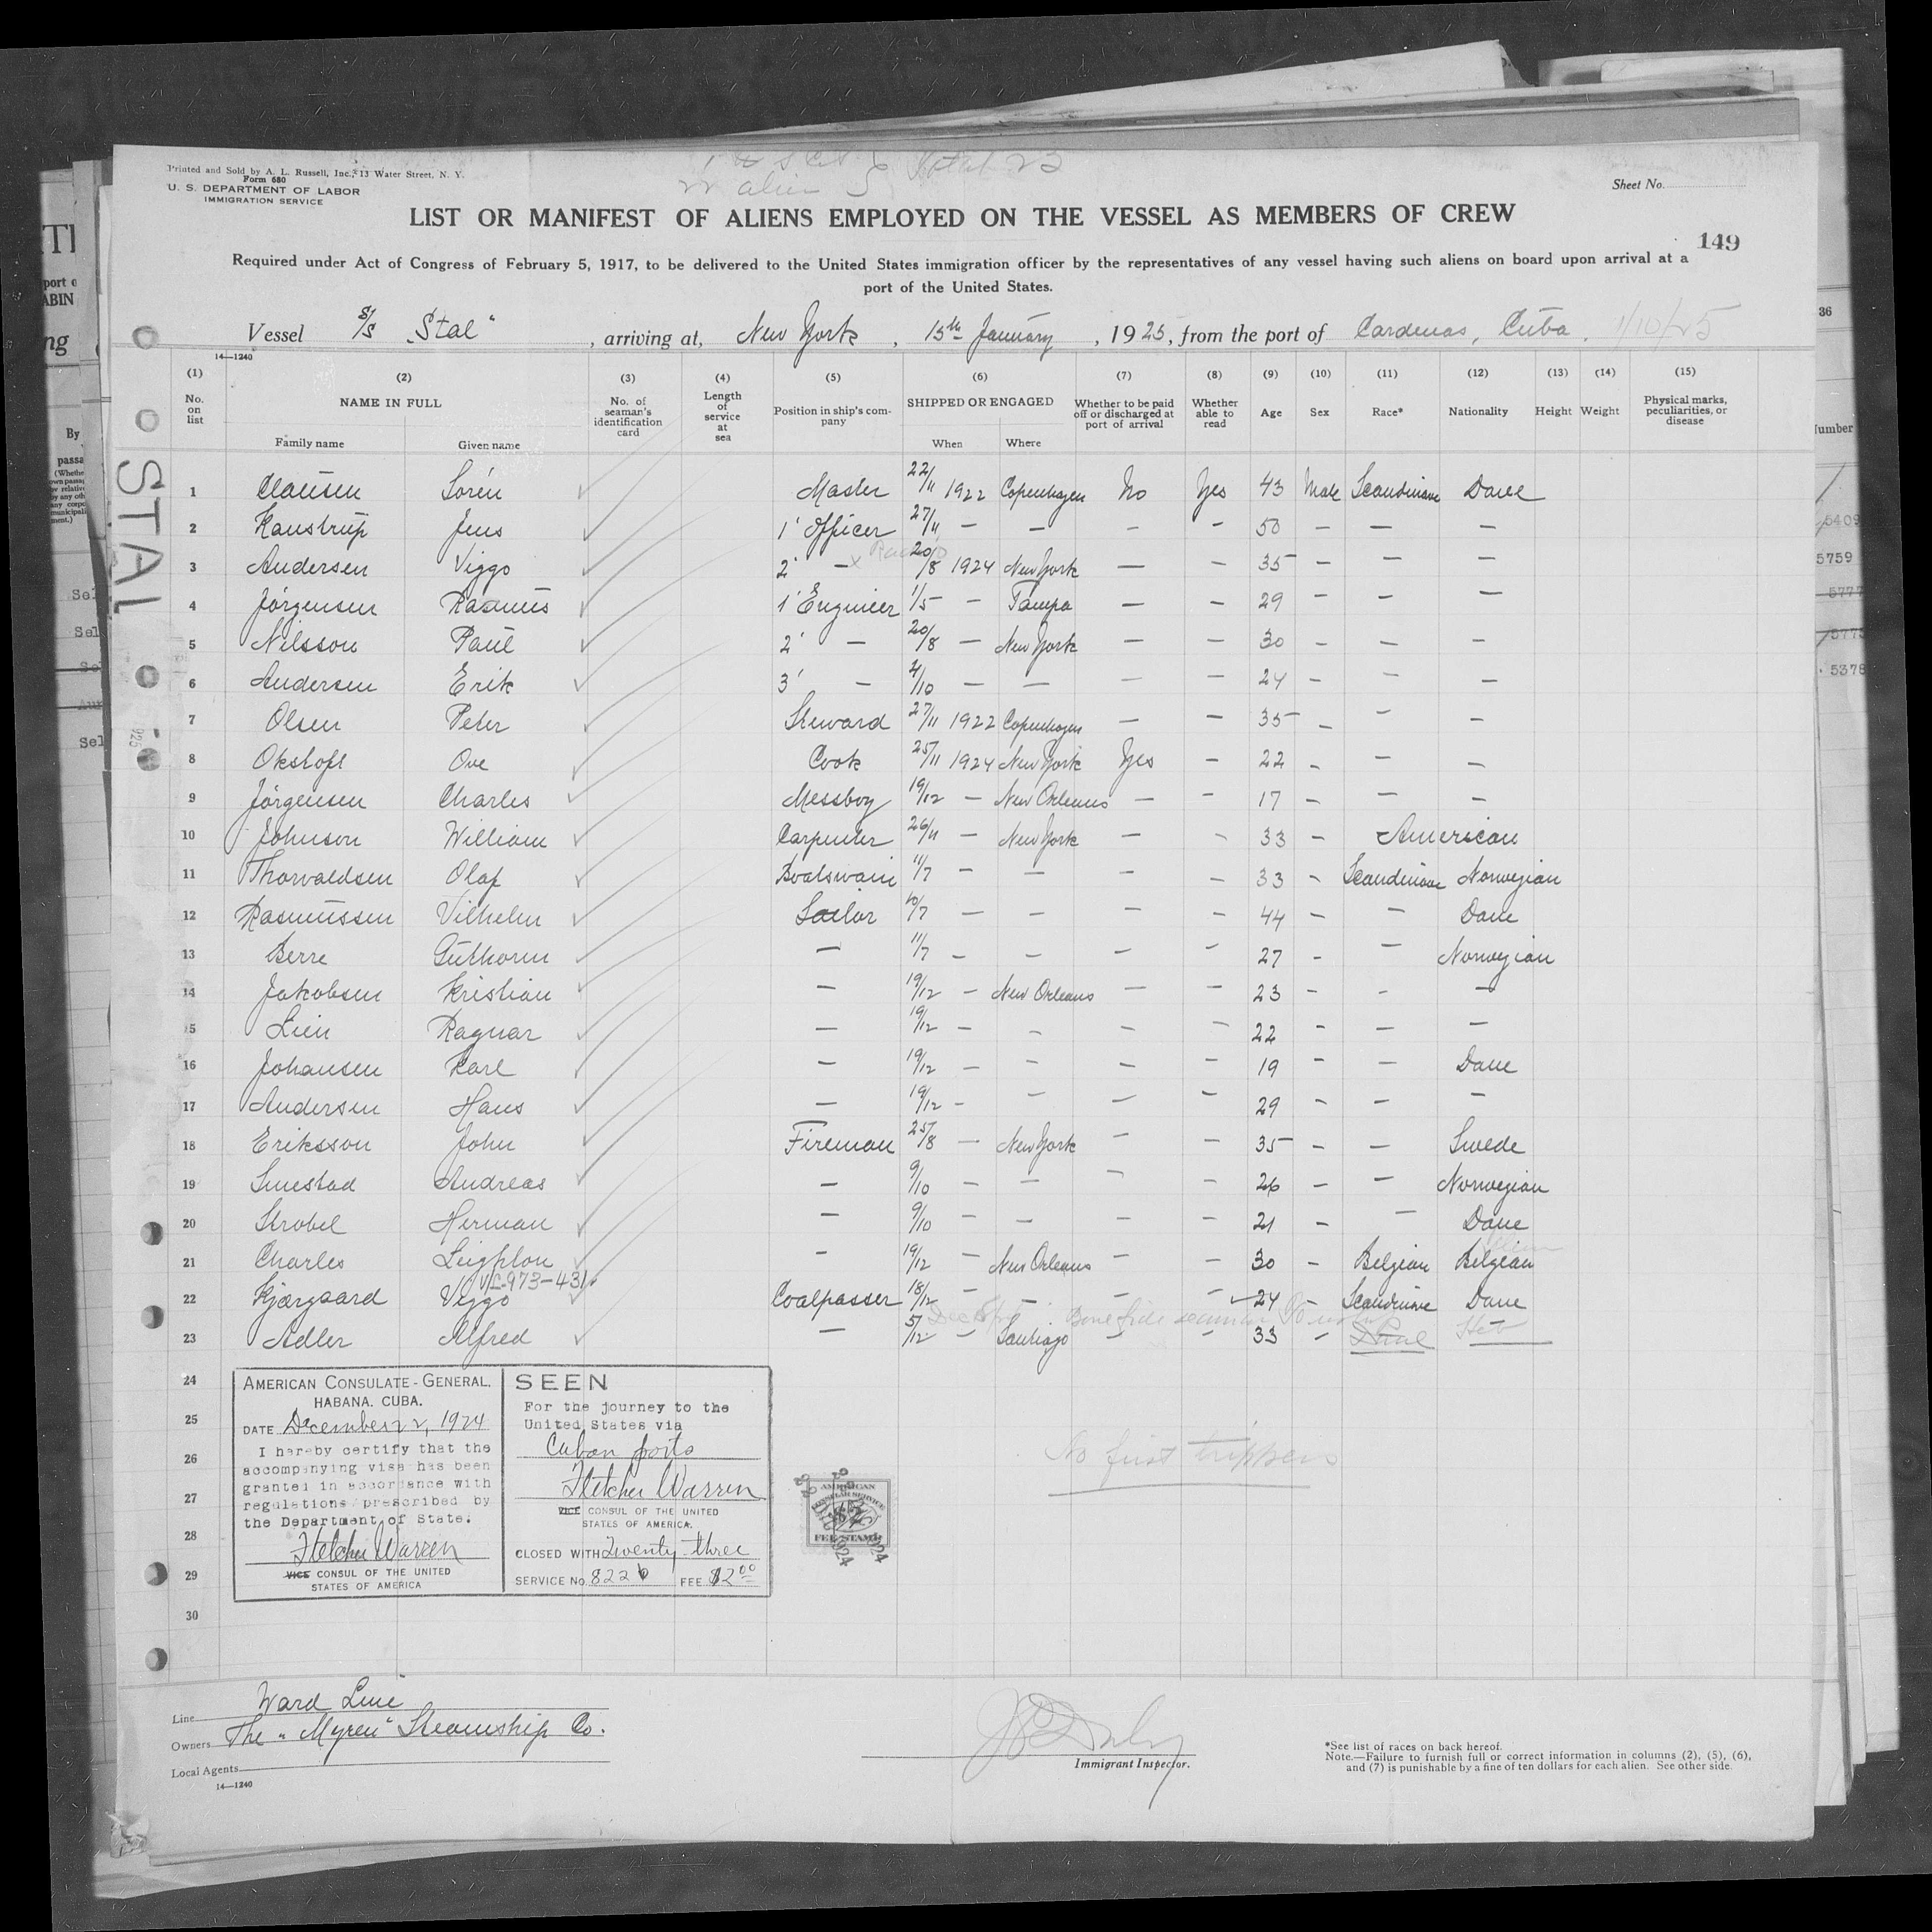 Total 23
Printed and Sold by A. L. Russell, Inc., 13 Water Street, N. Y.
Form 680
U. S. DEPARTMENT OF LABOR
IMMIGRATION SERVICE
Sheet No.
LIST OR MANIFEST OF ALIENS EMPLOYED ON THE VESSEL AS MEMBERS OF CREW
149
Required under Act of Congress of February 5, 1917, to be delivered to the United States immigration officer by the representatives of any vessel having such aliens on board upon arrival at a
port of the United States.
Vessel S/S „Stal“, arriving at, New York, 15th January, 1925, from the port of Cardenas, Cuba. 1/10/25
14—1240
(1) No. on list (2) NAME IN FULL Family name Given name (3) No. of seaman's identification card (4) Length of service at sea (5) Position in ship's company (6) SHIPPED OR ENGAGED When Where (7) Whether to be paid off or discharged at port of arrival (8) Whether able to read (9) Age (10) Sex (11) Race* (12) Nationality (13) Height (14) Weight (15) Physical marks, peculiarities, or disease
STAL
1 Clausen Sören ✓ Master 22/11 1922 Copenhagen No Yes 43 Male Scandinave Dane
2 Kanstrup Jens ✓ 1' Officer 27/11 — — — — 50 — — —
3 Andersen Viggo ✓ 2' — 20/8 1924 New York — — 35 — — —
4 Jörgensen Rasmus ✓ 1' Engineer 1/5 — Tampa — — 29 — — —
5 Nilsson Paul ✓ 2' — 20/8 — New York — — 30 — — —
6 Andersen Erik ✓ 3' — 4/10 — — — — 24 — — —
7 Olsen Peter ✓ Steward 27/11 1922 Copenhagen — — 35 — — —
8 Okstoft Ove ✓ Cook 25/11 1924 New York Yes — 22 — — —
9 Jörgensen Charles ✓ Messboy 19/12 — New Orleans — — 17 — — —
10 Johnson William ✓ Carpenter 26/11 — New York — — 33 — American
11 Thorvaldsen Olaf ✓ Boatswain 11/7 — — — — 33 — Scandinave Norwegian
12 Rasmussen Vilhelm ✓ Sailor 10/7 — — — — 44 — — Dane
13 Berre Guthorm ✓ — 11/7 — — — — 27 — — Norwegian
14 Jakobsen Kristian ✓ — 19/12 — New Orleans — — 23 — — —
15 Lien Ragnar ✓ — 19/12 — — — — 22 — — —
16 Johansen Karl ✓ — 19/12 — — — — 19 — — Dane
17 Andersen Hans ✓ — 19/12 — — — — 29 — — —
18 Eriksson John ✓ Fireman 25/8 — New York — — 35 — — Swede
19 Smestad Andreas ✓ — 9/10 — — — — 26 — — Norwegian
20 Strobel Herman ✓ — 9/10 — — — — 21 — — Dane
21 Charles Leighton ✓ — 19/12 — New Orleans — — 30 — Belgian Belgian
VL-973-431
22 Kjærgaard Viggo ✓ Coalpasser 18/12 — — — — ✓24 — Scandinave Dane
Bona fide seaman
23 Adler Alfred ✓ — 5/12 — Santiago — — 33 — Dane Heb
24
25
26
27
28
29
30
AMERICAN CONSULATE-GENERAL,
HABANA, CUBA.
DATE December 22, 1924
I hereby certify that the
accompanying visa has been
granted in accordance with
regulations prescribed by
the Department of State.
Fletcher Warren
VICE CONSUL OF THE UNITED
STATES OF AMERICA
SEEN
For the journey to the
United States via
Cuban ports
Fletcher Warren
VICE CONSUL OF THE UNITED
STATES OF AMERICA.
CLOSED WITH Twenty-three
SERVICE No. 8226 FEE $2.00
AMERICAN
CONSULAR SERVICE
FEE STAMP
No first trippers
Line Ward Line
Owners The „Myren“ Steamship Co.
Local Agents
14—1240
Immigrant Inspector.
*See list of races on back hereof.
Note.—Failure to furnish full or correct information in columns (2), (5), (6),
and (7) is punishable by a fine of ten dollars for each alien. See other side.
36
5409
5759
5777
5378